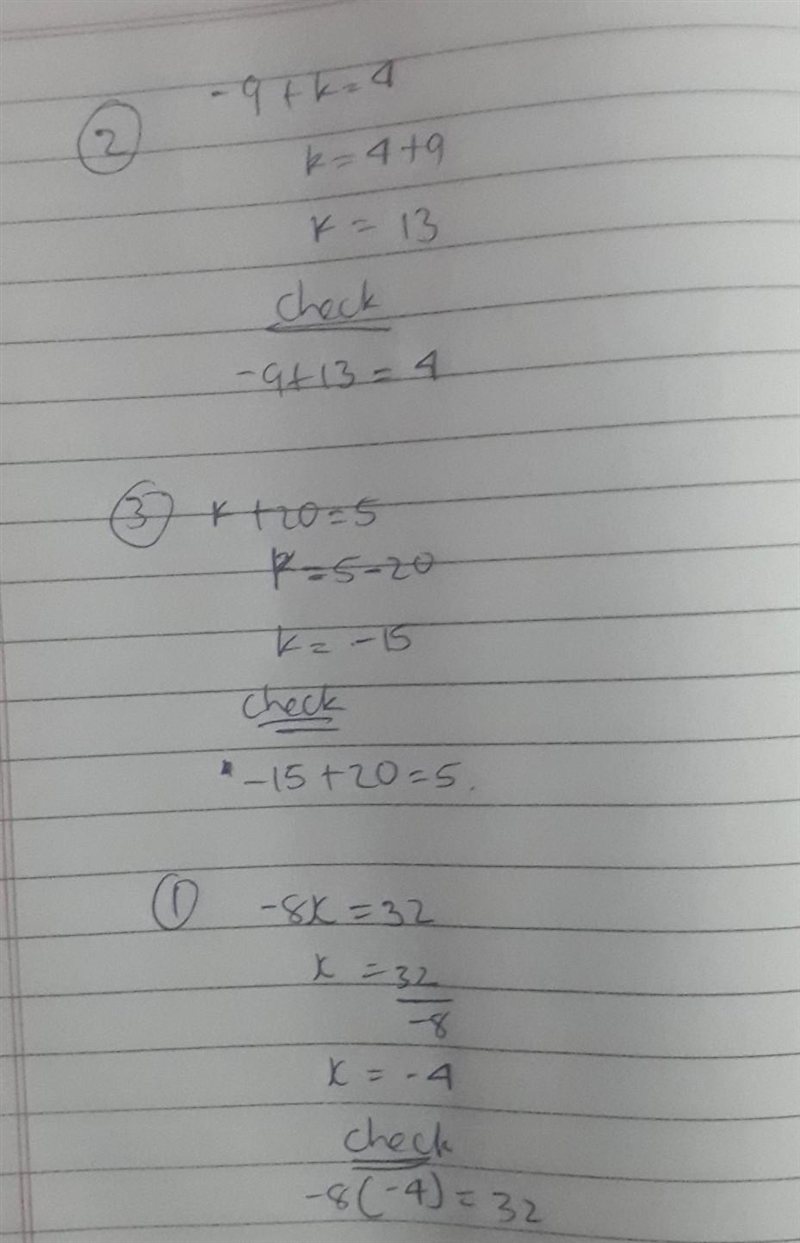 ② -9+k=4
k=4+9
k=13
check
-9+13=4
③ k+20=5
k=5-20
k=-15
check
-15+20=5.
① -8k=32
k=32/-8
k=-4
check
-8(-4)=32